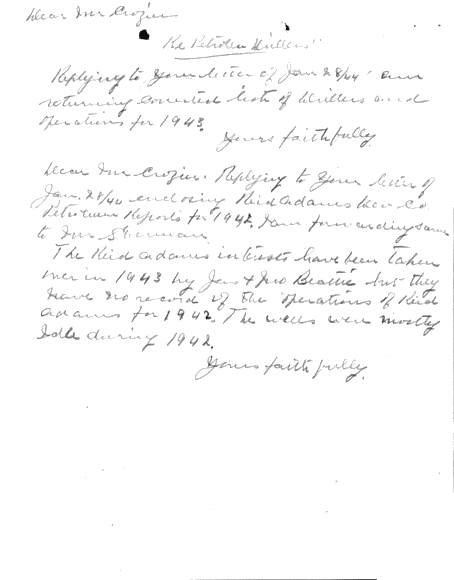 Dear Mr Crozier
Re Petroleum Drillers"
Replying to your letter of Jan 28/44 am
returning corrected list of Drillers and
operations for 1943.
Yours faithfully
Dear Mr Crozier. Replying to your letter of
Jan. 28/44 enclosing Reid Adams Dev Co.
Petroleum Reports for 1942, I am forwarding same
to Mr Sherman
The Reid Adams interests have been taken
over in 1943 by Jas & Jno Beattie but they
have no record of the operations of Reid
Adams for 1942. The wells were mostly
Idle during 1942.
Yours faithfully.